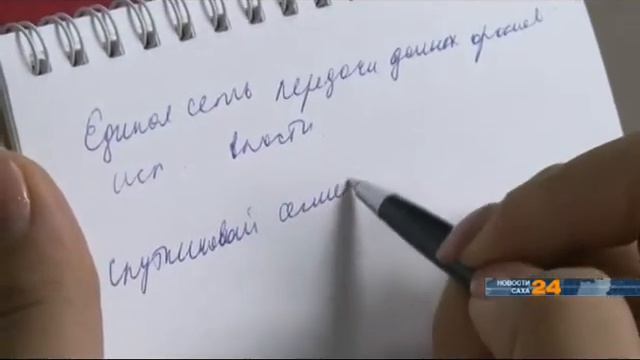 Единая сеть передачи данных органов
исп. власти
Спутниковый сегмен
НОВОСТИ
САХА 24